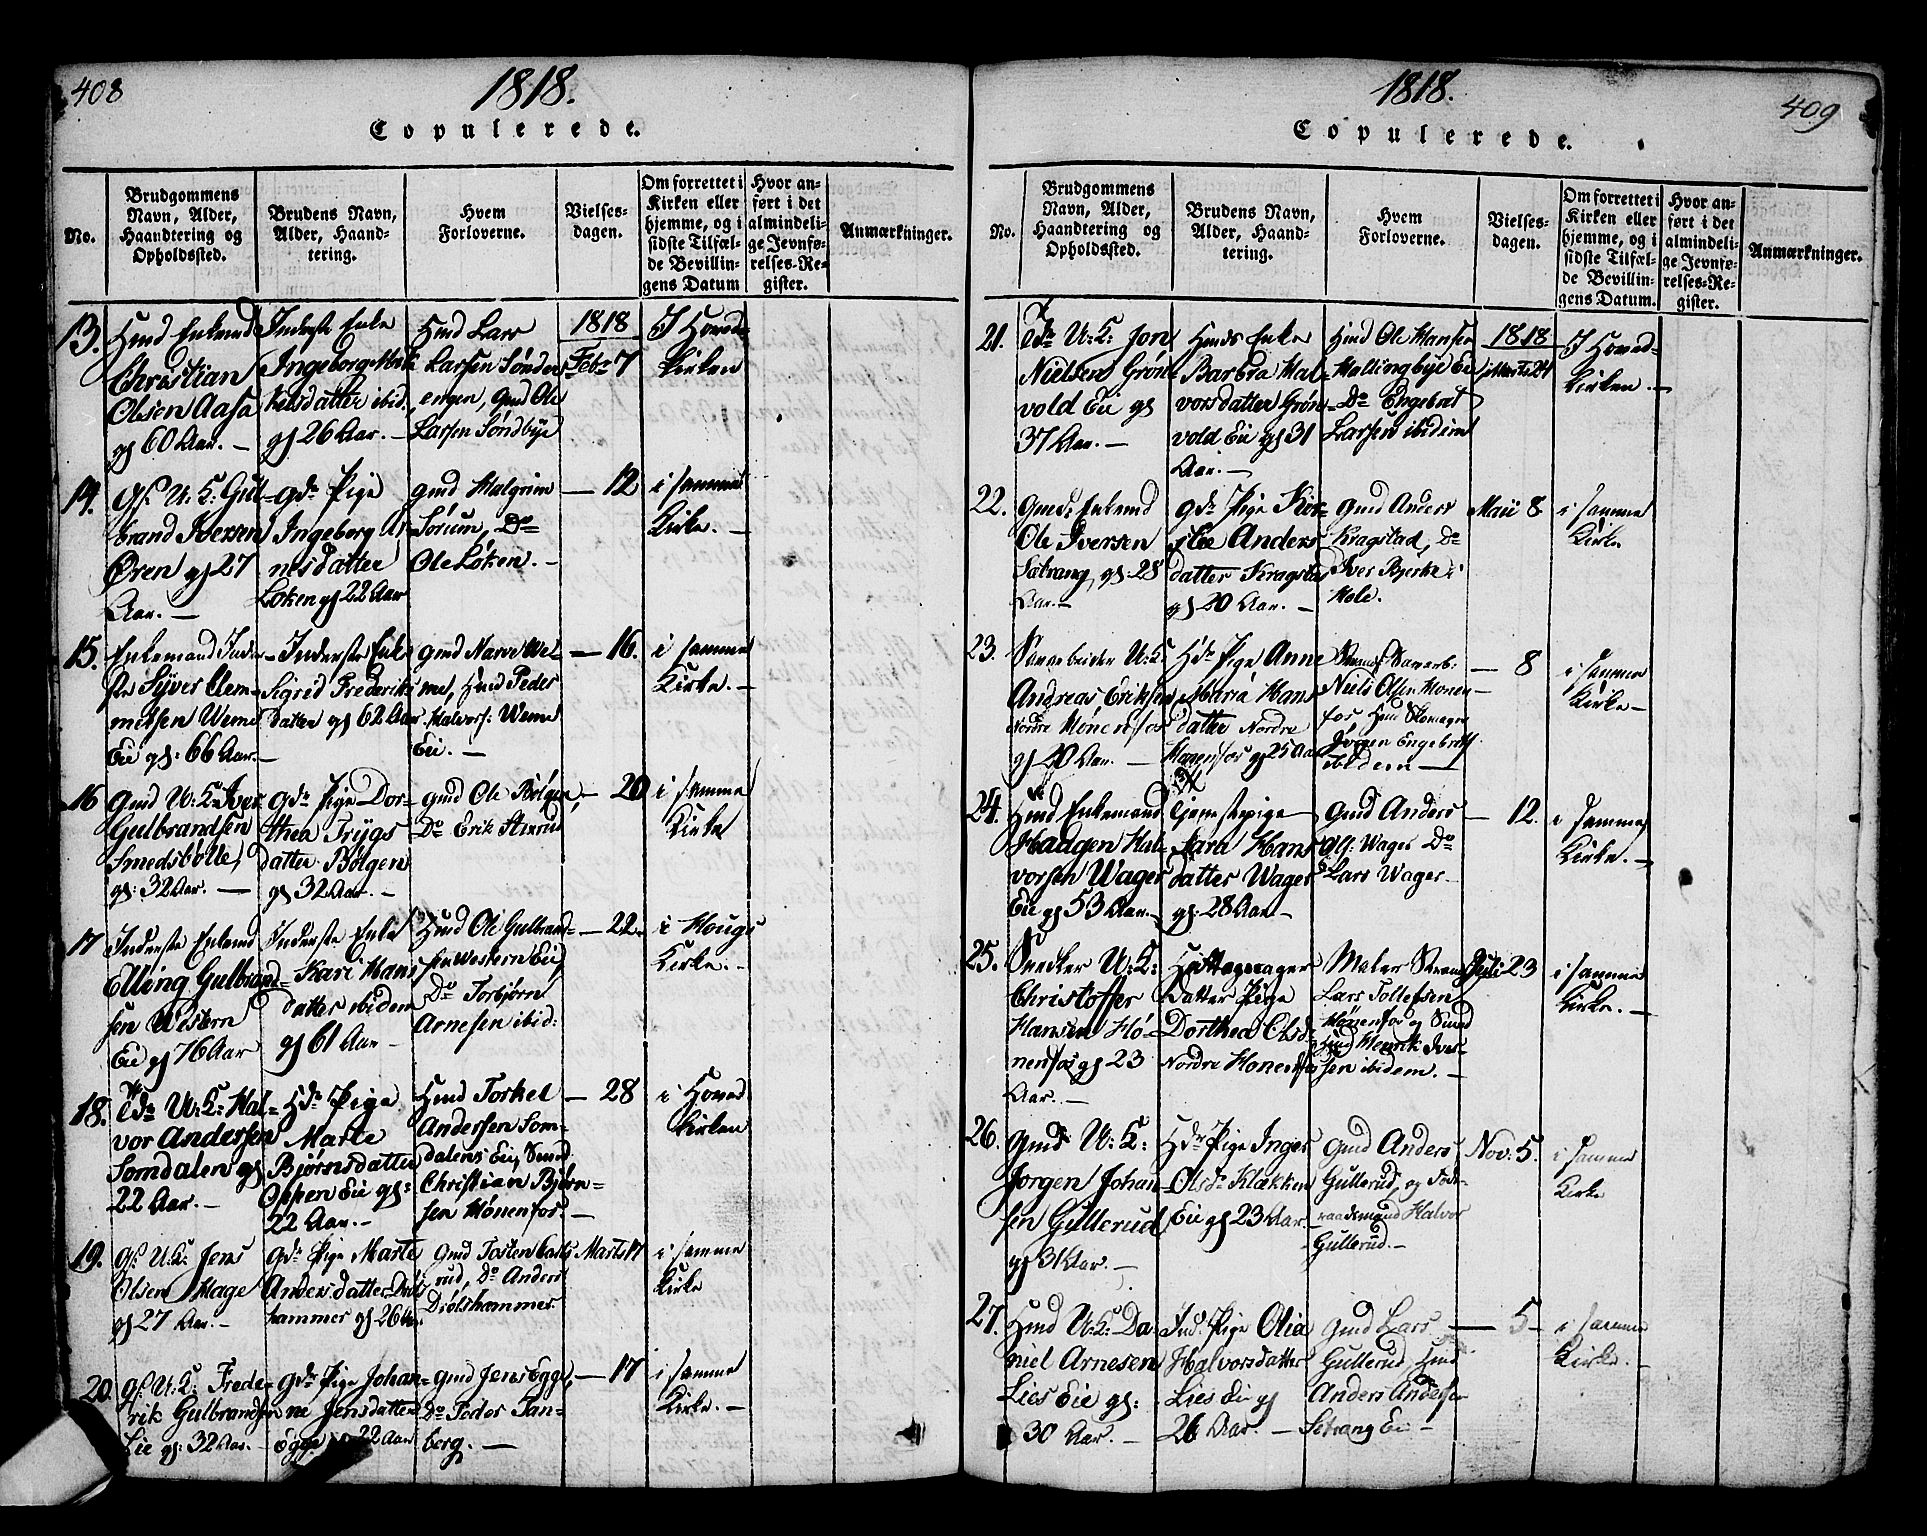 408
1818.
Copulerede.
No.
Brudgommens
Navn, Alder,
Haandtering og
Opholdssted.
Brudens Navn,
Alder, Haand-
tering.
Hvem
Forloverne.
Vielses-
dagen.
Om forrettet i
Kirken eller
hjemme, og i
sidste Tilfæl-
de Bevillin-
gens Datum
Hvor an-
ført i det
almindeli-
ge Jevnfø-
relses-Re-
gister.
Anmærkninger.
13.
Huusmd Enkemd
Christian
Olsen Aasa
gl 60 Aar. —
Inderste Enke
Ingeborg
ibid.
gl 26 Aar. —
Hmd Lars
Larsen Sønder
engen, Gmd Ole
Larsen Søndbye
1818
Febr 7
I Hoved
Kirken
14.
Gf. U: K: Gul-
brand Iversen
Øren gl 27
Aar. —
Gdr Pige
Ingeborg Ar
nesdatter
Løken gl 22 Aar
Gmd Halgrim
Sørum, Do
Ole Løken. —
— 12
i samme
Kirke. —
15.
Enkemand Inder
ste Syver Clem-
metsen Weme
Eie gl: 66 Aar. —
Inderste Enke
Sigrid Frederiks
datter gl 62 Aar
Gmd Narve Wel-
me, Hmd Peder
Halvors: Weme
Eie. —
— 16.
i samme
Kirke. —
16
Gmd U: K: Iver
Gulbrandsen
Smedsbølle,
gl: 32 Aar. —
Gdr Pige Dor-
thea Trygs
datter Bølgen
gl 32 Aar. —
Gmd Ole Bølgen,
Do Erik
— 20
i samme
Kirke
17
Inderste Enkemd
Elling Gulbrand-
sen Western
Eie gl 76 Aar
Inderste Enke
Kari Hans
datter ibidem
gl 61 Aar —
Hmd Ole Gulbrand-
sen Western Eie,
Do Torbjørn
Arnesen ibid:
— 22.
i Hougs
Kirke. —
18.
U: K: Hal-
vor Andersen
Somdalen gl
22 Aar. —
Hdr Pige
Marte
Bjørnsdatter
Oppen Eie gl:
22 Aar. —
Hmd Torkel
Andersen Som-
dalens Eie,
Christian Bjørn-
sen Hønenfos. —
— 28
i Hoved
Kirken
19.
Gf. U: K: Jens
Olsen Hage
gl 27 Aar. —
Gdr Pige Marte
Andersdatter
hammer gl 26 Aar.
Gmd Tosten
rud, Do Anders
Drolshammer.
Marts 17
i samme
Kirke
20.
Gf. U: K: Frede-
rik Gulbrandsen
Lie gl: 32 Aar. —
Gdr Pige Johan-
ne Jensdatter
Egge gl 22 Aar
Gmd Jens Egge,
Do Peder Tan-
berg. —
— 17
i samme
Kirke. —
409
1818.
Copulerede.
No.
Brudgommens
Navn, Alder,
Haandtering og
Opholdssted.
Brudens Navn,
Alder, Haand-
tering.
Hvem
Forloverne.
Vielses-
dagen.
Om forrettet i
Kirken eller
hjemme, og i
sidste Tilfæl-
de Bevillin-
gens Datum.
Hvor an-
ført i det
almindeli-
ge Jevnfø-
relses-Re-
gister.
Anmærkninger.
21.
U: K: Jon
Nielsen Grøn-
vold Eie gl
37 Aar. —
Hmds Enke
Barbra Hal-
vorsdatter Grøn-
vold Eie gl 31
Aar. —
Hmd Ole Hansen
Hallingbye Eie
Do Engebret
Larsen ibidem
1818
Marts 24
I Hoved-
Kirken. —
22.
Gmd: Enkemd
Ole Iversen
Setrang, gl: 28
Aar. —
Gdr Pige Kir-
stie Anders
datter Kragstad
gl 20 Aar. —
Gmd Anders
Kragstad, Do
Iver Bjerke i
Hole.
Maii 8
i samme
Kirke
23.
Saugarbeider U: K:
Andreas Eriksen
Nordre Hønenfos
gl 20 Aar. —
Hdr Pige Anne
Maria Hans
datter Nordre
Hønenfos gl 25 Aar
Niels Olsen Honen-
fos Hmd Skomager
Jørgen Engebretf
ibidem —
— 8
i samme
Kirke —
24.
Hmd Enkemand
Haagen Hal-
vorsen Wager
Eie gl 53 Aar. —
Tjenstepige
Sara Hans
datter Wager
gl: 28 Aar —
Gmd Anders
Wager Do
Lars Wager —
— 12.
i samme
Kirke. —
25.
Snedker U: K:
Christoffer
Hansen Hø-
nenfos gl 23
Aar. —
Hattemager
datter Pige
Dorthea Olsd-
Nordre Honenfos
Maler
Lars Tollefsen
Hønenfos og
Hmd Henrik Iver-
sen ibidem. —
Juli 23
i samme
Kirke. —
26.
Gmd U: K:
Jørgen Johan-
sen Gullerud,
gl 31 Aar. —
Hdr Pige Inger
Olsdr Klækken
Eie gl 23 Aar. —
Gmd Anders
Gullerud, og
Halvor
Gullerud. —
Nov: 5.
i samme
Kirke
27.
Hmd U: K: Da
niel Arnesen
Lies Eie gl:
30 Aar. —
Ind. Pige Olia
Halvorsdatter
Lies Eie gl
26 Aar. —
Gmd Lars
Gullerud, Hmd
Anders Andersen
Setrang Eie —
— 5 —
i samme
Kirke. —